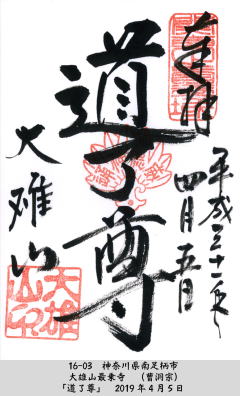 奉拝
平成三十一年
四月五日
道了尊
大雄山
大雄
山印
16-03 神奈川県南足柄市
大雄山最乗寺 (曹洞宗)
「道了尊」 2019年4月5日